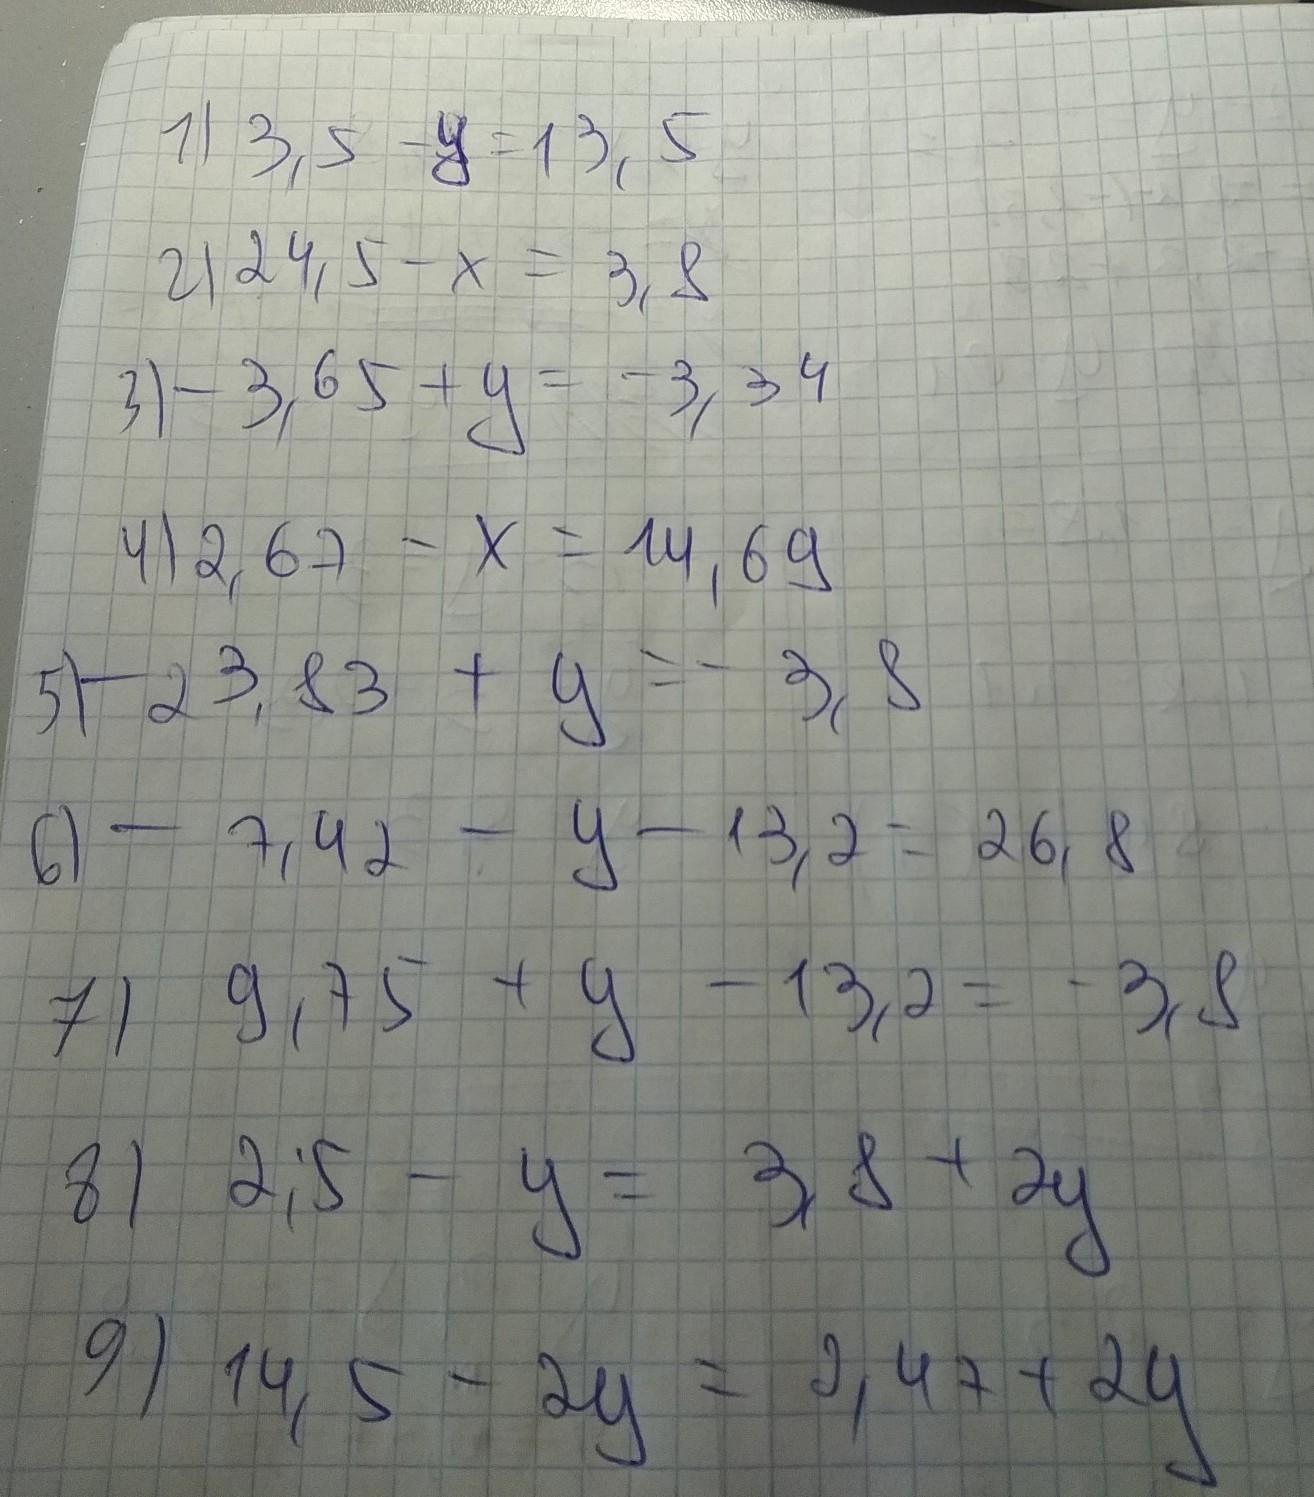 1) 3,5 - y = 13,5
2) 24,5 - x = 3,8
3) - 3,65 + y = -3,34
4) 2,67 - x = 14,69
5) - 23,83 + y = - 3,8
6) - 7,42 - y - 13,2 = 26,8
7) 9,75 + y - 13,2 = - 3,8
8) 2,5 - y = 3,8 + 2y
9) 14,5 - 2y = 2,47 + 2y